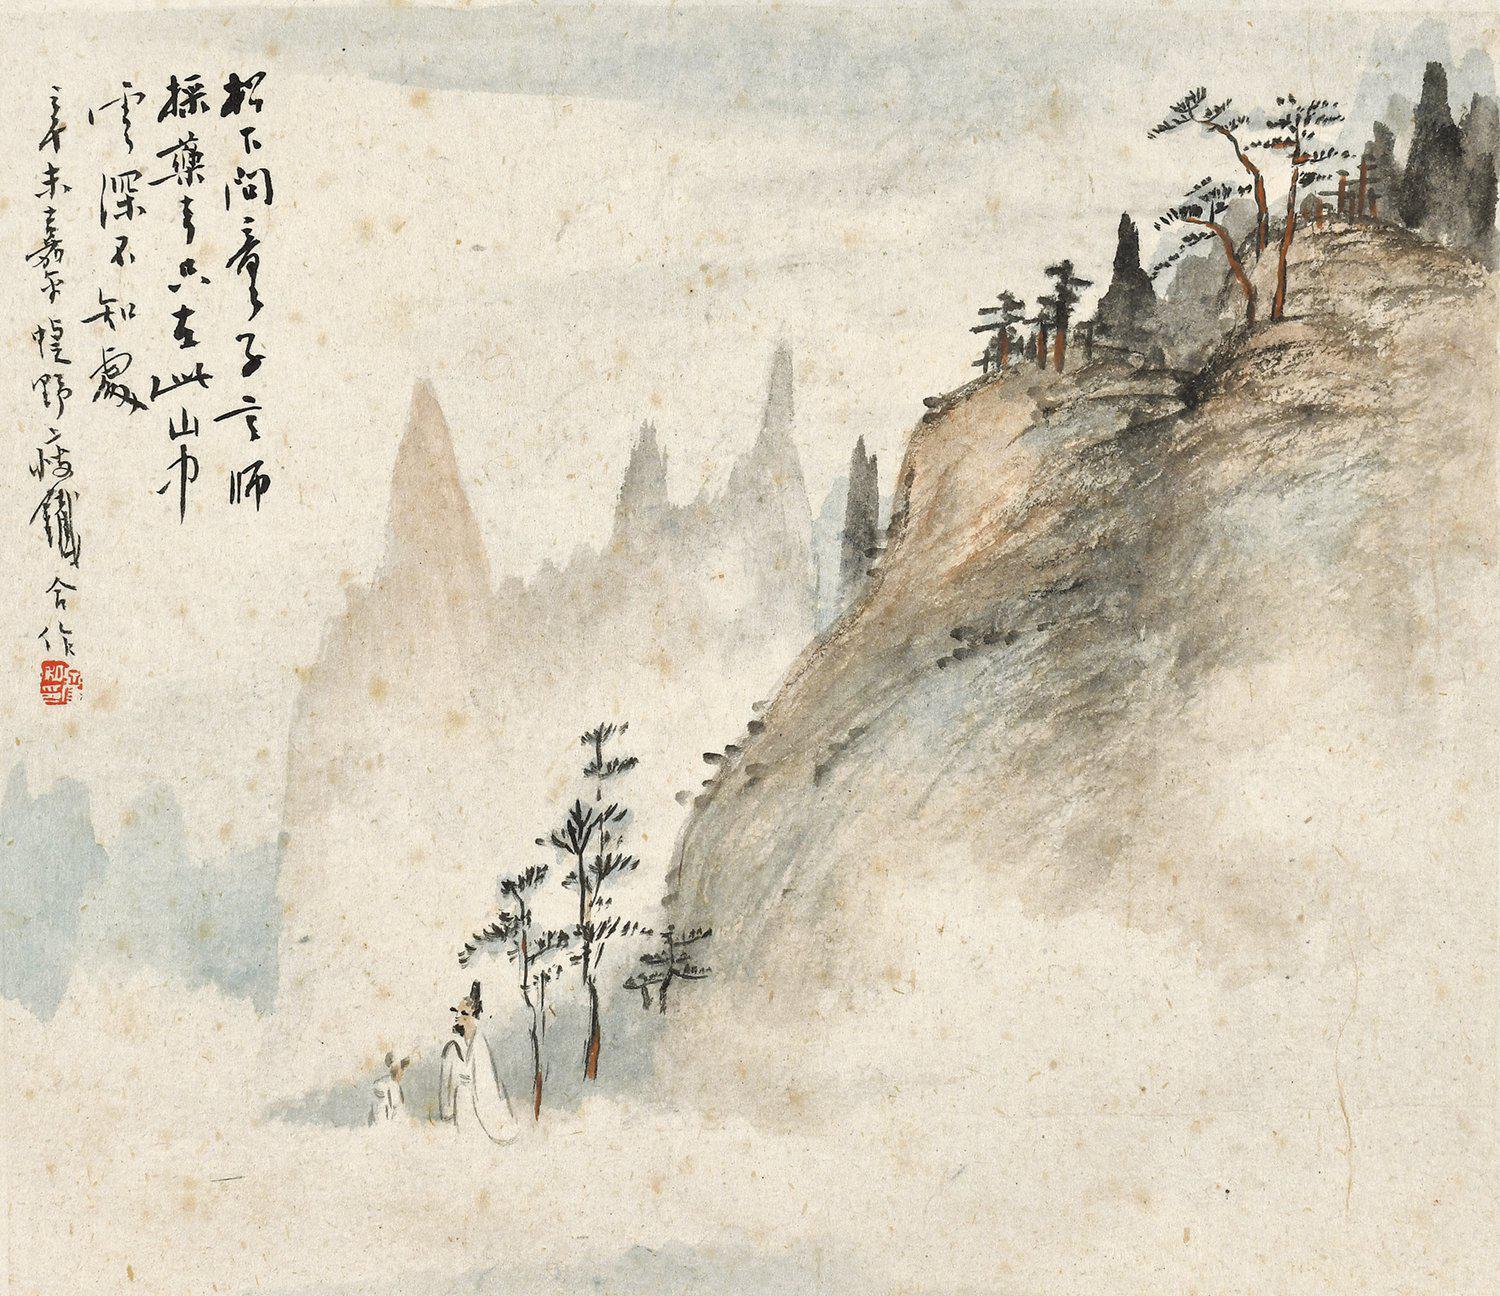 松下問童子言師
採藥去只在此山中
雲深不知處
辛未嘉平野鐵合作